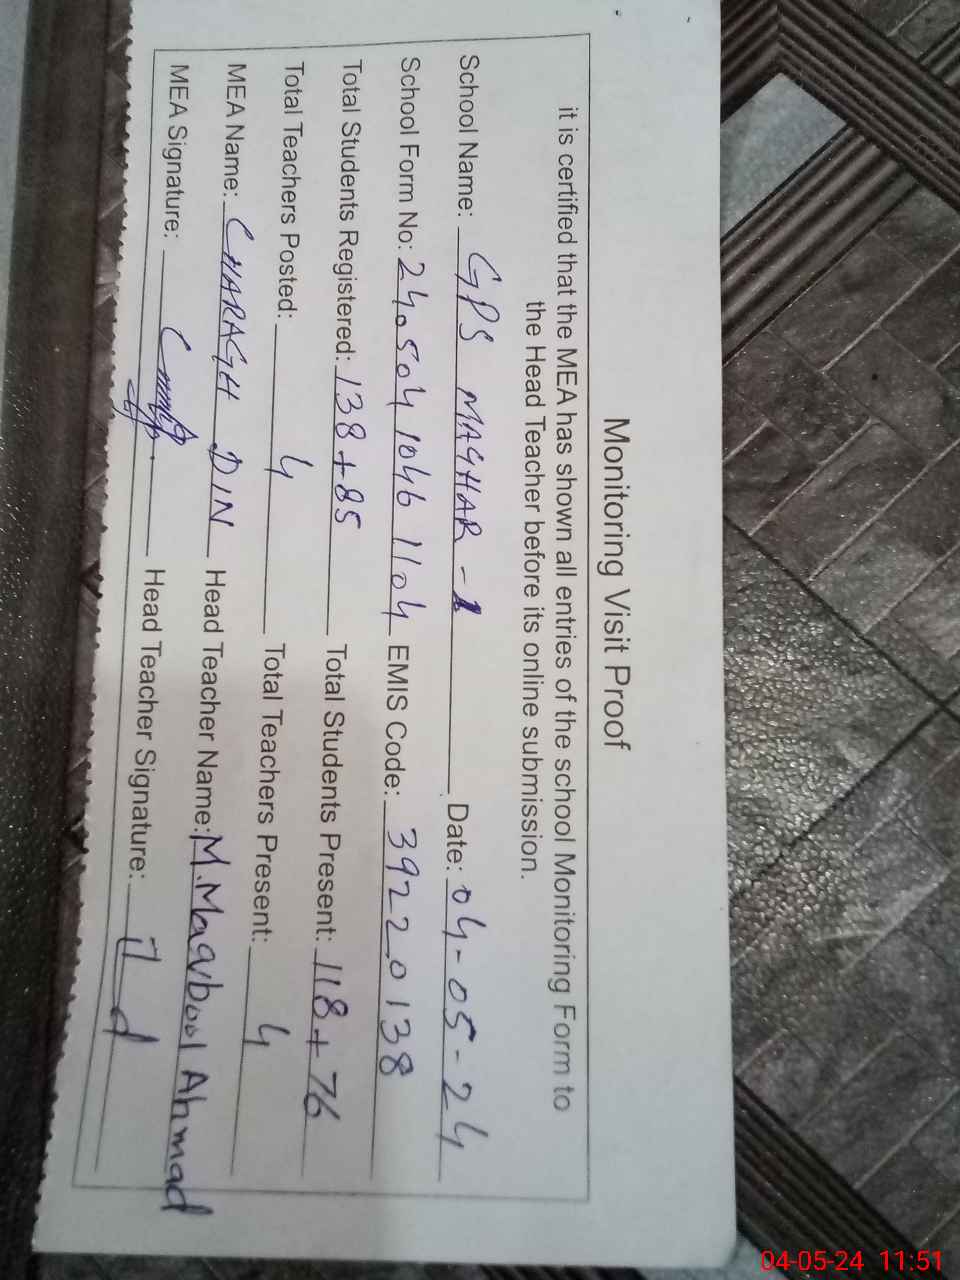 Monitoring Visit Proof
it is certified that the MEA has shown all entries of the school Monitoring Form to
the Head Teacher before its online submission.
School Name: GPS MAGHAR - 1 Date: 04-05-24
School Form No: 240504 1046 1104 EMIS Code: 39220138
Total Students Registered: 138+85 Total Students Present: 118+76
Total Teachers Posted: 4 Total Teachers Present: 4
MEA Name: CHARAGH DIN Head Teacher Name: M.Maqbool Ahmad
MEA Signature: Head Teacher Signature:
04-05-24 11:51